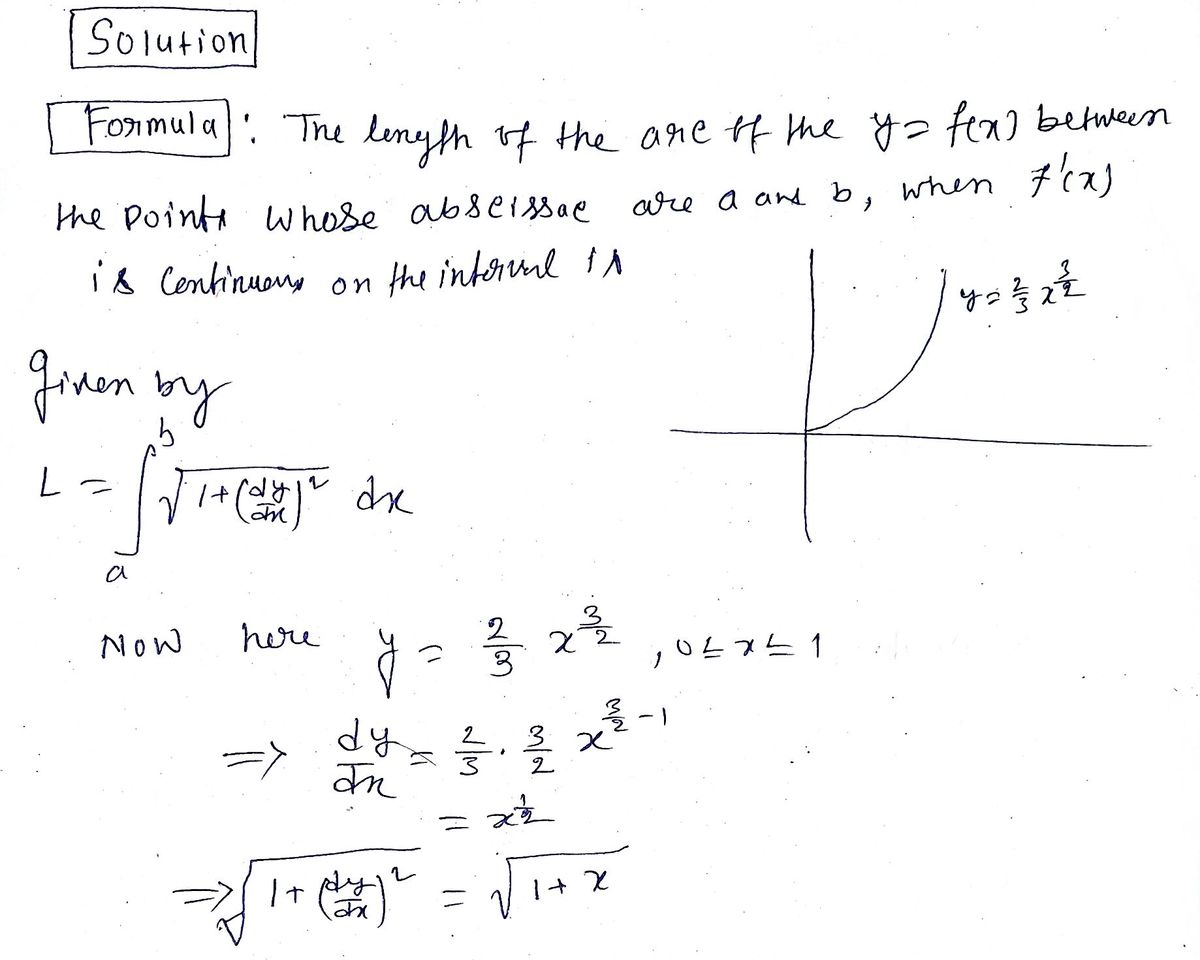 Solution
Formula : The length of the arc of the y = f(x) between
the points whose abscissae are a and b, when f'(x)
is continuous on the interval is
y = 2/3 x^(3/2)
given by
L = ∫_a^b √(1+(dy/dx)^2) dx
Now here y = 2/3 x^(3/2), 0 ≤ x ≤ 1
=> dy/dx = 2/3 · 3/2 x^(3/2 - 1)
= x^(1/2)
=> √(1+(dy/dx)^2) = √(1+x)